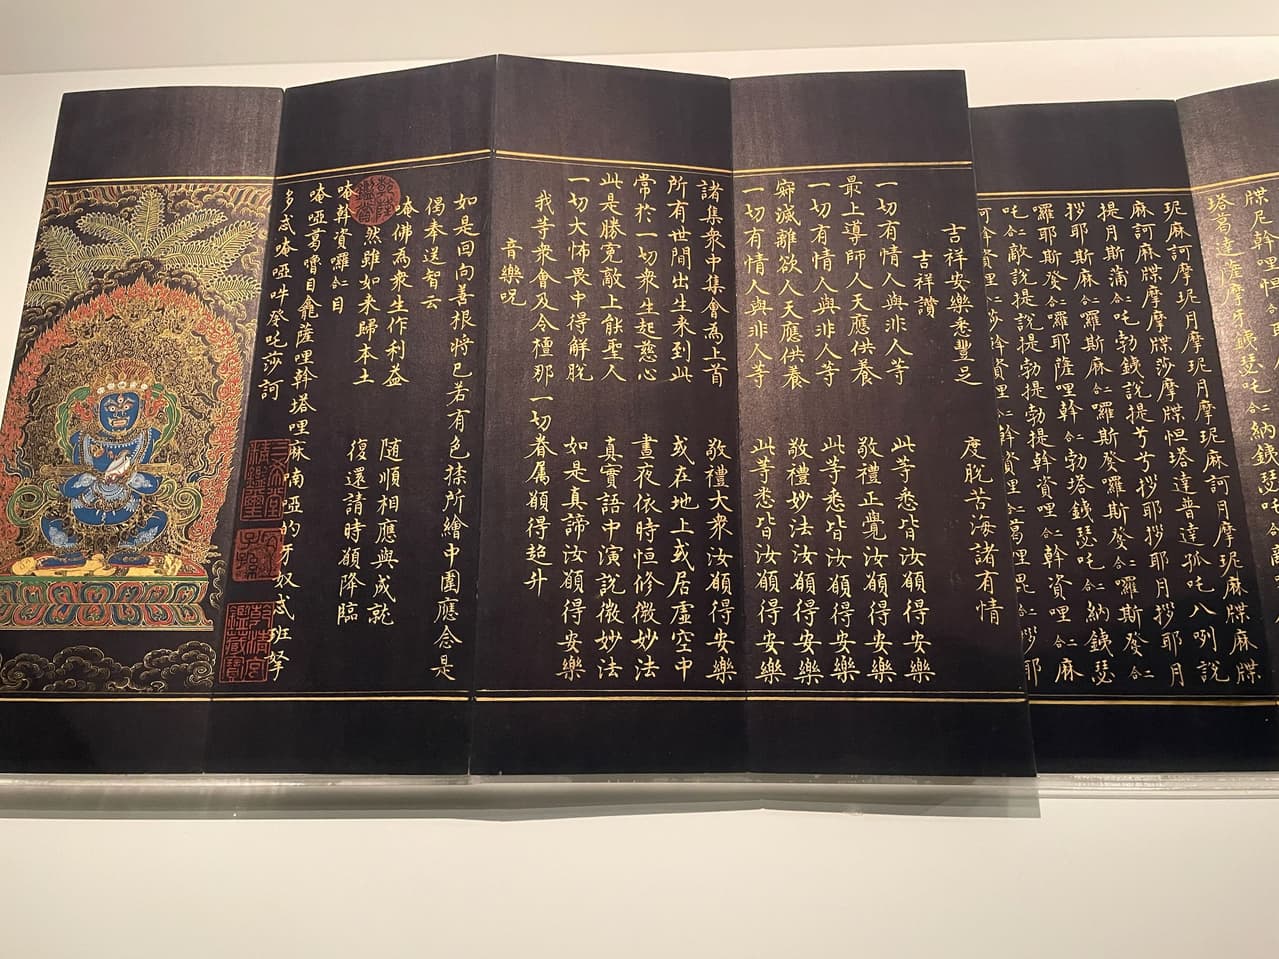 牒尼幹哩怛
塔葛達薩摩牙銕瑟吒合二納銕瑟吒
玭麻訶摩玭月摩玭月摩玭麻訶月摩玭麻牒麻牒
麻訶麻牒摩摩牒莎摩牒怛塔達普達孤吒八咧說
提月斯蒲合二吒勃銕說提兮兮拶耶拶耶月拶耶月
拶耶斯麻合二囉斯麻合二囉斯癹合二囉斯癹合二
囉耶斯癹合二囉耶薩哩幹合二勃塔銕瑟吒合二納銕瑟
吒合二敵說提說提勃提勃提幹資哩合二幹資哩合二麻
吉祥安樂悉豐足 度脫苦海諸有情
吉祥讚
一切有情人與非人等 此等悉皆汝願得安樂
最上導師人天應供養 敬禮正覺汝願得安樂
一切有情人與非人等 此等悉皆汝願得安樂
寂滅離欲人天應供養 敬禮妙法汝願得安樂
一切有情人與非人等 此等悉皆汝願得安樂
諸集衆中集會為上首 敬禮大衆汝願得安樂
所有世間出生来到此 或在地上或居虛空中
常於一切衆生起慈心 晝夜依時恒修微妙法
此是勝冤敵上能聖人 真實語中演說微妙法
一切大怖畏中得解脫 如是真諦汝願得安樂
我等衆會及今檀那一切眷属願得超升
音樂呪
如是回向善根將已若有色𢄙所繪中圍應念是
偈奉送智云
唵佛為衆生作利益 随順相應與成就
然雖如来歸本土 復還請時願降臨
唵幹資囉合二目
唵啞葛嚕目龕薩哩幹塔哩麻喃啞的牙奴忒班拏
多忒唵啞吽癹吒莎訶